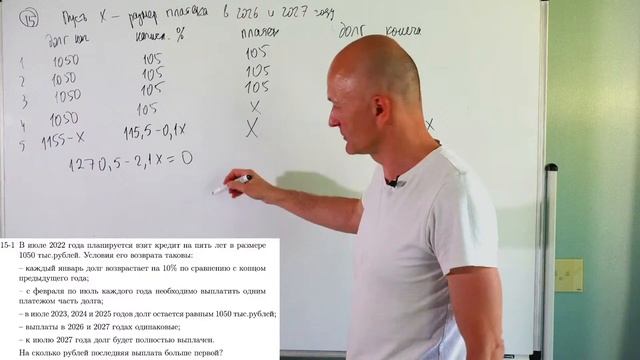 15 Пусть X — размер платежа в 2026 и 2027 году
долг нач начисл. % платеж долг конец
1 1050 105 105
2 1050 105 105
3 1050 105 105
4 1050 105 X
5 1155-X 115,5-0,1X X X
1270,5-2,1X=0
15-1 В июле 2022 года планируется взят кредит на пять лет в размере
1050 тыс.рублей. Условия его возврата таковы:
– каждый январь долг возрастает на 10% по сравнению с концом
предыдущего года;
– с февраля по июль каждого года необходимо выплатить одним
платежом часть долга;
– в июле 2023, 2024 и 2025 годов долг остается равным 1050 тыс.рублей;
– выплаты в 2026 и 2027 годах одинаковые;
– к июлю 2027 года долг будет полностью выплачен.
На сколько рублей последняя выплата больше первой?